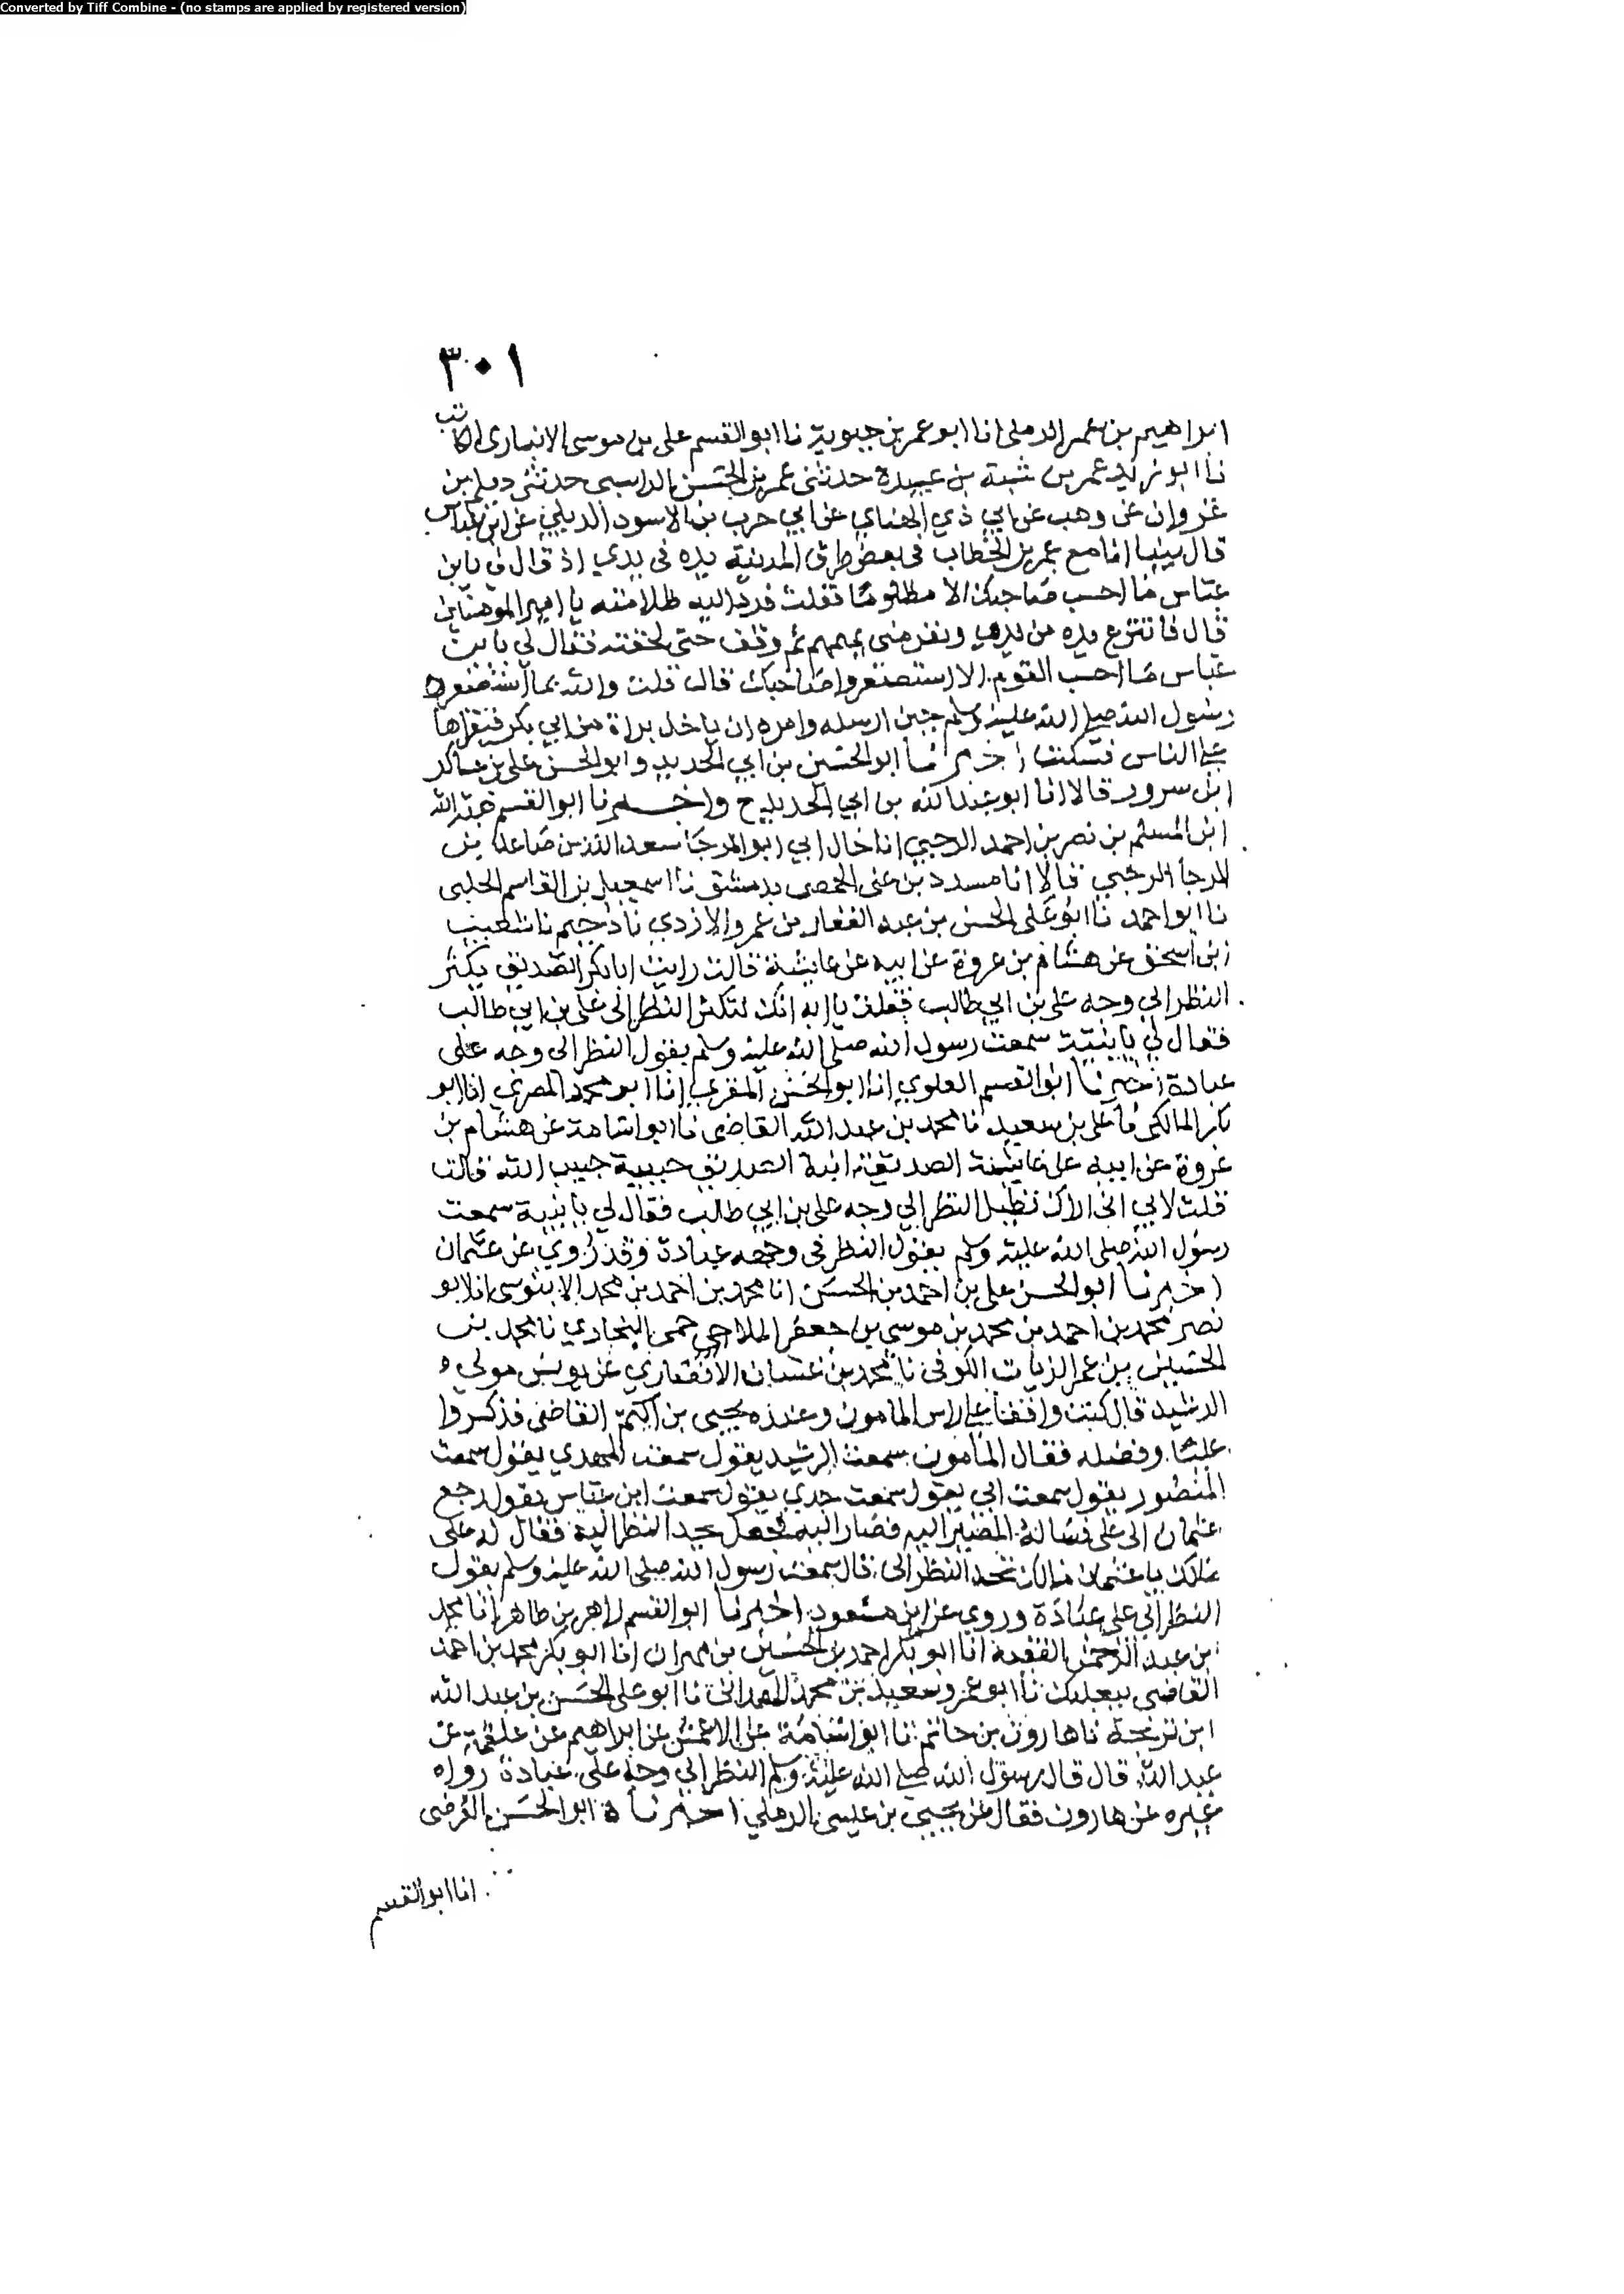 Converted by Tiff Combine - (no stamps are applied by registered version)
٣٠١
ابراهيم بن عمر الرملى انا ابو عمر بن حيوية نا ابو القسم على بن موسى الانبارى الكاتب
نا ابو زيد عمر بن شبة بن عبيدة حدثنى عمر بن الحسن الراسبى حدثنى ديلم بن
غزوان عن وهب عن ابي ذي الهناي عن ابي حرب بن الاسود الديلي عن ابن عباس
قال بينا انا مع عمر بن الخطاب فى بعض طرق المدينة يده فى يدي اذ قال لى يا بن
عباس ما احسب صاحبك الا مظلوما فقلت فرد اليه ظلامته يا امير المومنين
قال فانتزع يده من يدي ونفر منى يهمهم ثم وقف حتى لحقته فقال لي يا بن
عباس ما احسب القوم الا استصغروا صاحبك قال قلت والله ما استصغره
رسول الله صلى الله عليه وسلم حين ارسله وامره ان ياخذ براة من ابي بكر فيقراها
على الناس فسكت اخبرنا ابو الحسين بن ابي الحديد وابو الحسن على بن عساكر
ابن سرور قالا انا ابو عبد الله بن ابي الحديد ح واخبرنا ابو القسم هبة الله
ابن المسلم بن نصر بن احمد الرحبي انا خال ابي ابو المرجا سعد الله بن صاعد بن
المرجا الرحبي قالا انا مسدد بن على الحمصى بدمشق نا اسمعيل بن القاسم الحلبى
نا ابو احمد نا ابو على الحسن بن عبد الغفار بن عمرو الازدي نا دحيم نا شعيب
ابن اسحق عن هشام بن عروة عن ابيه عن عايشة قالت رايت ابا بكر الصديق يكثر
النظر الي وجه على بن ابي طالب فقلت يا ابه انك لتكثر النظر الى على بن ابي طالب
فقال لي يا بنية سمعت رسول الله صلى الله عليه وسلم يقول النظر الى وجه على
عبادة اخبرنا ابو القسم العلوي انا ابو الحسن المقري انا ابو محمد المصري انا ابو
بكر المالكى نا على بن سعيد نا محمد بن عبد الله القاضى نا ابو اسامة عن هشام بن
عروة عن ابيه عن عايشة الصديقة ابنة الصديق حبيبة حبيب الله قالت
قلت لابي انى اراك تطيل النظر الي وجه على بن ابي طالب فقال لي يا بنية سمعت
رسول الله صلى الله عليه وسلم يقول النظر فى وجهه عبادة وقد روي عن عثمان
اخبرنا ابو الحسن على بن احمد بن الحسن انا محمد بن احمد بن محمد الابنوسى انا ابو
نصر محمد بن احمد بن محمد بن موسى بن جعفر الملاحمى البخاري نا محمد بن
الحسين بن عمر الزيات الكوفى نا محمد بن غسان الانصاري عن يونس مولى
الرشيد قال كنت واقفا على راس المامون وعنده يحيى بن اكثم القاضى فذكروا
عليا وفضله فقال المامون سمعت الرشيد يقول سمعت المهدي يقول سمعت
المنصور يقول سمعت ابي يقول سمعت جدي يقول سمعت ابن عباس يقول رجع
عثمان الى على فساله المصير اليه فصار اليه فجعل يحد النظر اليه فقال له على
مالك يا عثمان مالك تحد النظر الى قال سمعت رسول الله صلى الله عليه وسلم يقول
النظر الى على عبادة وروي عن ابن مسعود اخبرنا ابو القسم زاهر بن طاهر انا محمد
بن عبد الرحمن الفقيه انا ابو بكر احمد بن الحسين بن مهران انا ابو بكر محمد بن احمد
القاضى ببعلبك نا ابو عمرو سعيد بن محمد الهمدانى نا ابو على الحسن بن عبد الله
ابن ترنجة نا هارون بن حاتم نا ابو اسامة عن الاعمش عن ابراهيم عن علقمة عن
عبد الله قال قال رسول الله صلى الله عليه وسلم النظر الي وجه على عبادة رواه
غيره عن هارون فقال عن يحيى بن عيسى الرملي اخبرناه ابو الحسن الفرضى
انا ابو القسم